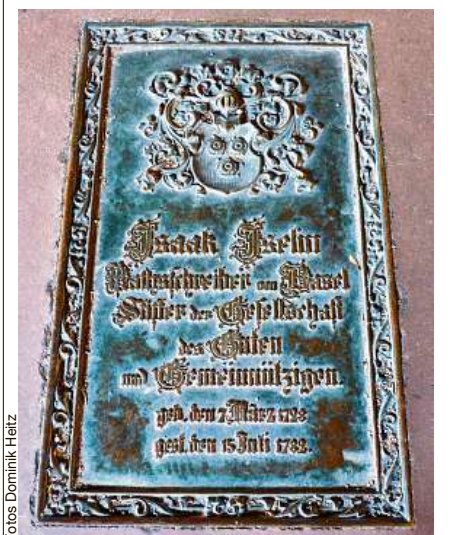 Isaak Iselin
Rathsschreiber von Basel
Stifter der Gesellschaft
des Guten
und Gemeinnützigen.
geb. den 7 März 1728
gest. den 15 Juli 1782.
otos Dominik Heitz